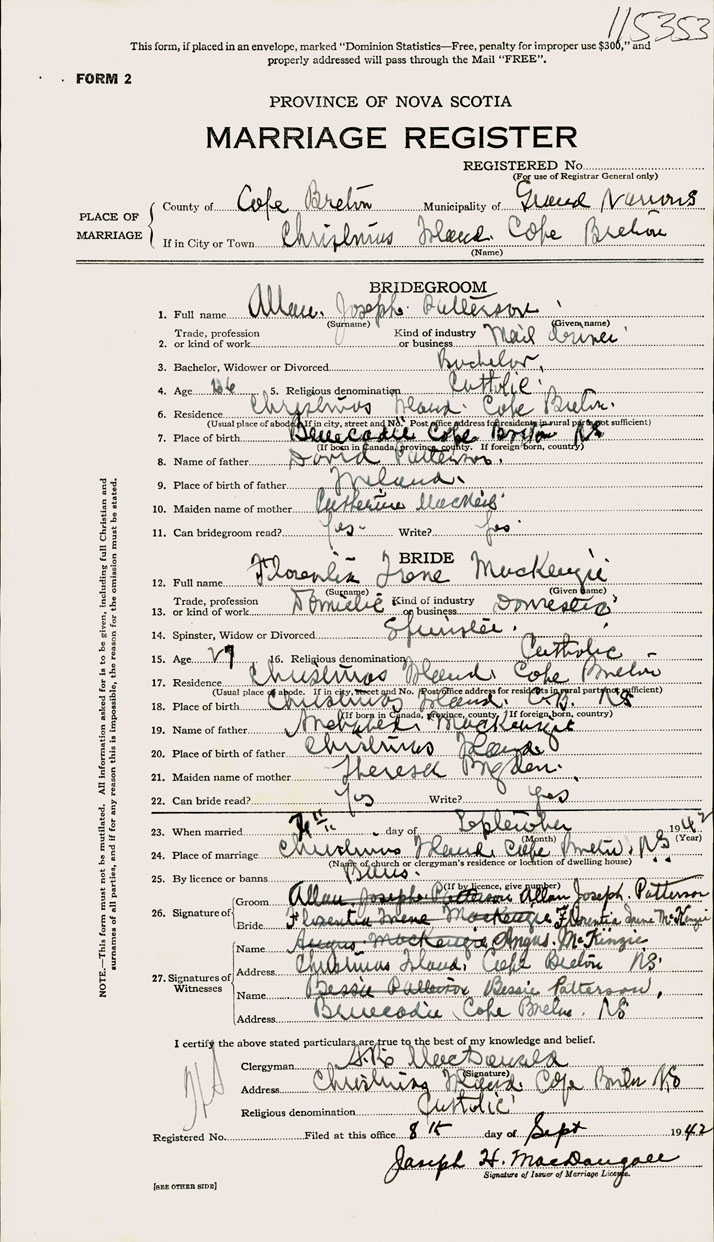 115353
This form, if placed in an envelope, marked “Dominion Statistics—Free, penalty for improper use $300,” and
properly addressed will pass through the Mail “FREE”.
FORM 2
PROVINCE OF NOVA SCOTIA
MARRIAGE REGISTER
REGISTERED No.
(For use of Registrar General only)
PLACE OF MARRIAGE
County of Cape Breton Municipality of Grand Narrows
If in City or Town Christmas Island. Cape Breton
(Name)
BRIDEGROOM
1. Full name Allan. Joseph. Patterson
(Surname) (Given name)
2. Trade, profession or kind of work Kind of industry or business Mail driver
3. Bachelor, Widower or Divorced Bachelor,
4. Age 5. Religious denomination Catholic
6. Residence Christmas Island. Cape Breton.
(Usual place of abode. If in city, street and No. Post office address for residents in rural parts not sufficient)
7. Place of birth Benecadie Cape Breton NS
(If born in Canada, province, county. If foreign born, country)
8. Name of father David Patterson.
9. Place of birth of father Ireland.
10. Maiden name of mother Catherine MacNeil
11. Can bridegroom read? Yes Write? yes
BRIDE
12. Full name Florentia Irene MacKenzie
(Surname) (Given name)
13. Trade, profession or kind of work Domestic Kind of industry or business Domestic
14. Spinster, Widow or Divorced Spinster.
15. Age 27 16. Religious denomination Catholic
17. Residence Christmas Island. Cape Breton
(Usual place of abode. If in city, street and No. Post office address for residents in rural parts not sufficient)
18. Place of birth Christmas Island. C.B. NS
(If born in Canada, province, county. If foreign born, country)
19. Name of father MacKenzie
20. Place of birth of father Christmas Island
21. Maiden name of mother Theresa
22. Can bride read? Yes Write? yes
23. When married day of September 1942
(Month) (Year)
24. Place of marriage Christmas Island. Cape Breton, NS
(Name of church or clergyman's residence or location of dwelling house)
25. By licence or banns Banns.
(If by licence, give number)
26. Signature of
Groom Allan Joseph Patterson Allan Joseph. Patterson
Bride Florentia Irene MacKenzie Florentia Irene McKenzie
27. Signatures of Witnesses
Name Angus MacKenzie Angus. McKinzie
Address Christmas Island. Cape Breton NS.
Name Bessie Patterson Bessie Patterson,
Address Benecadie. Cape Breton. NS
I certify the above stated particulars are true to the best of my knowledge and belief.
Clergyman MacDonald
(Signature)
Address Christmas Island. Cape Breton NS
Religious denomination Catholic
Registered No. Filed at this office 8th day of Sept 1942
Joseph H. MacDougall
Signature of Issuer of Marriage License.
[SEE OTHER SIDE]
NOTE.—This form must not be mutilated. All information asked for is to be given, including full Christian and
surnames of all parties, and if for any reason this is impossible, the reason for the omission must be stated.